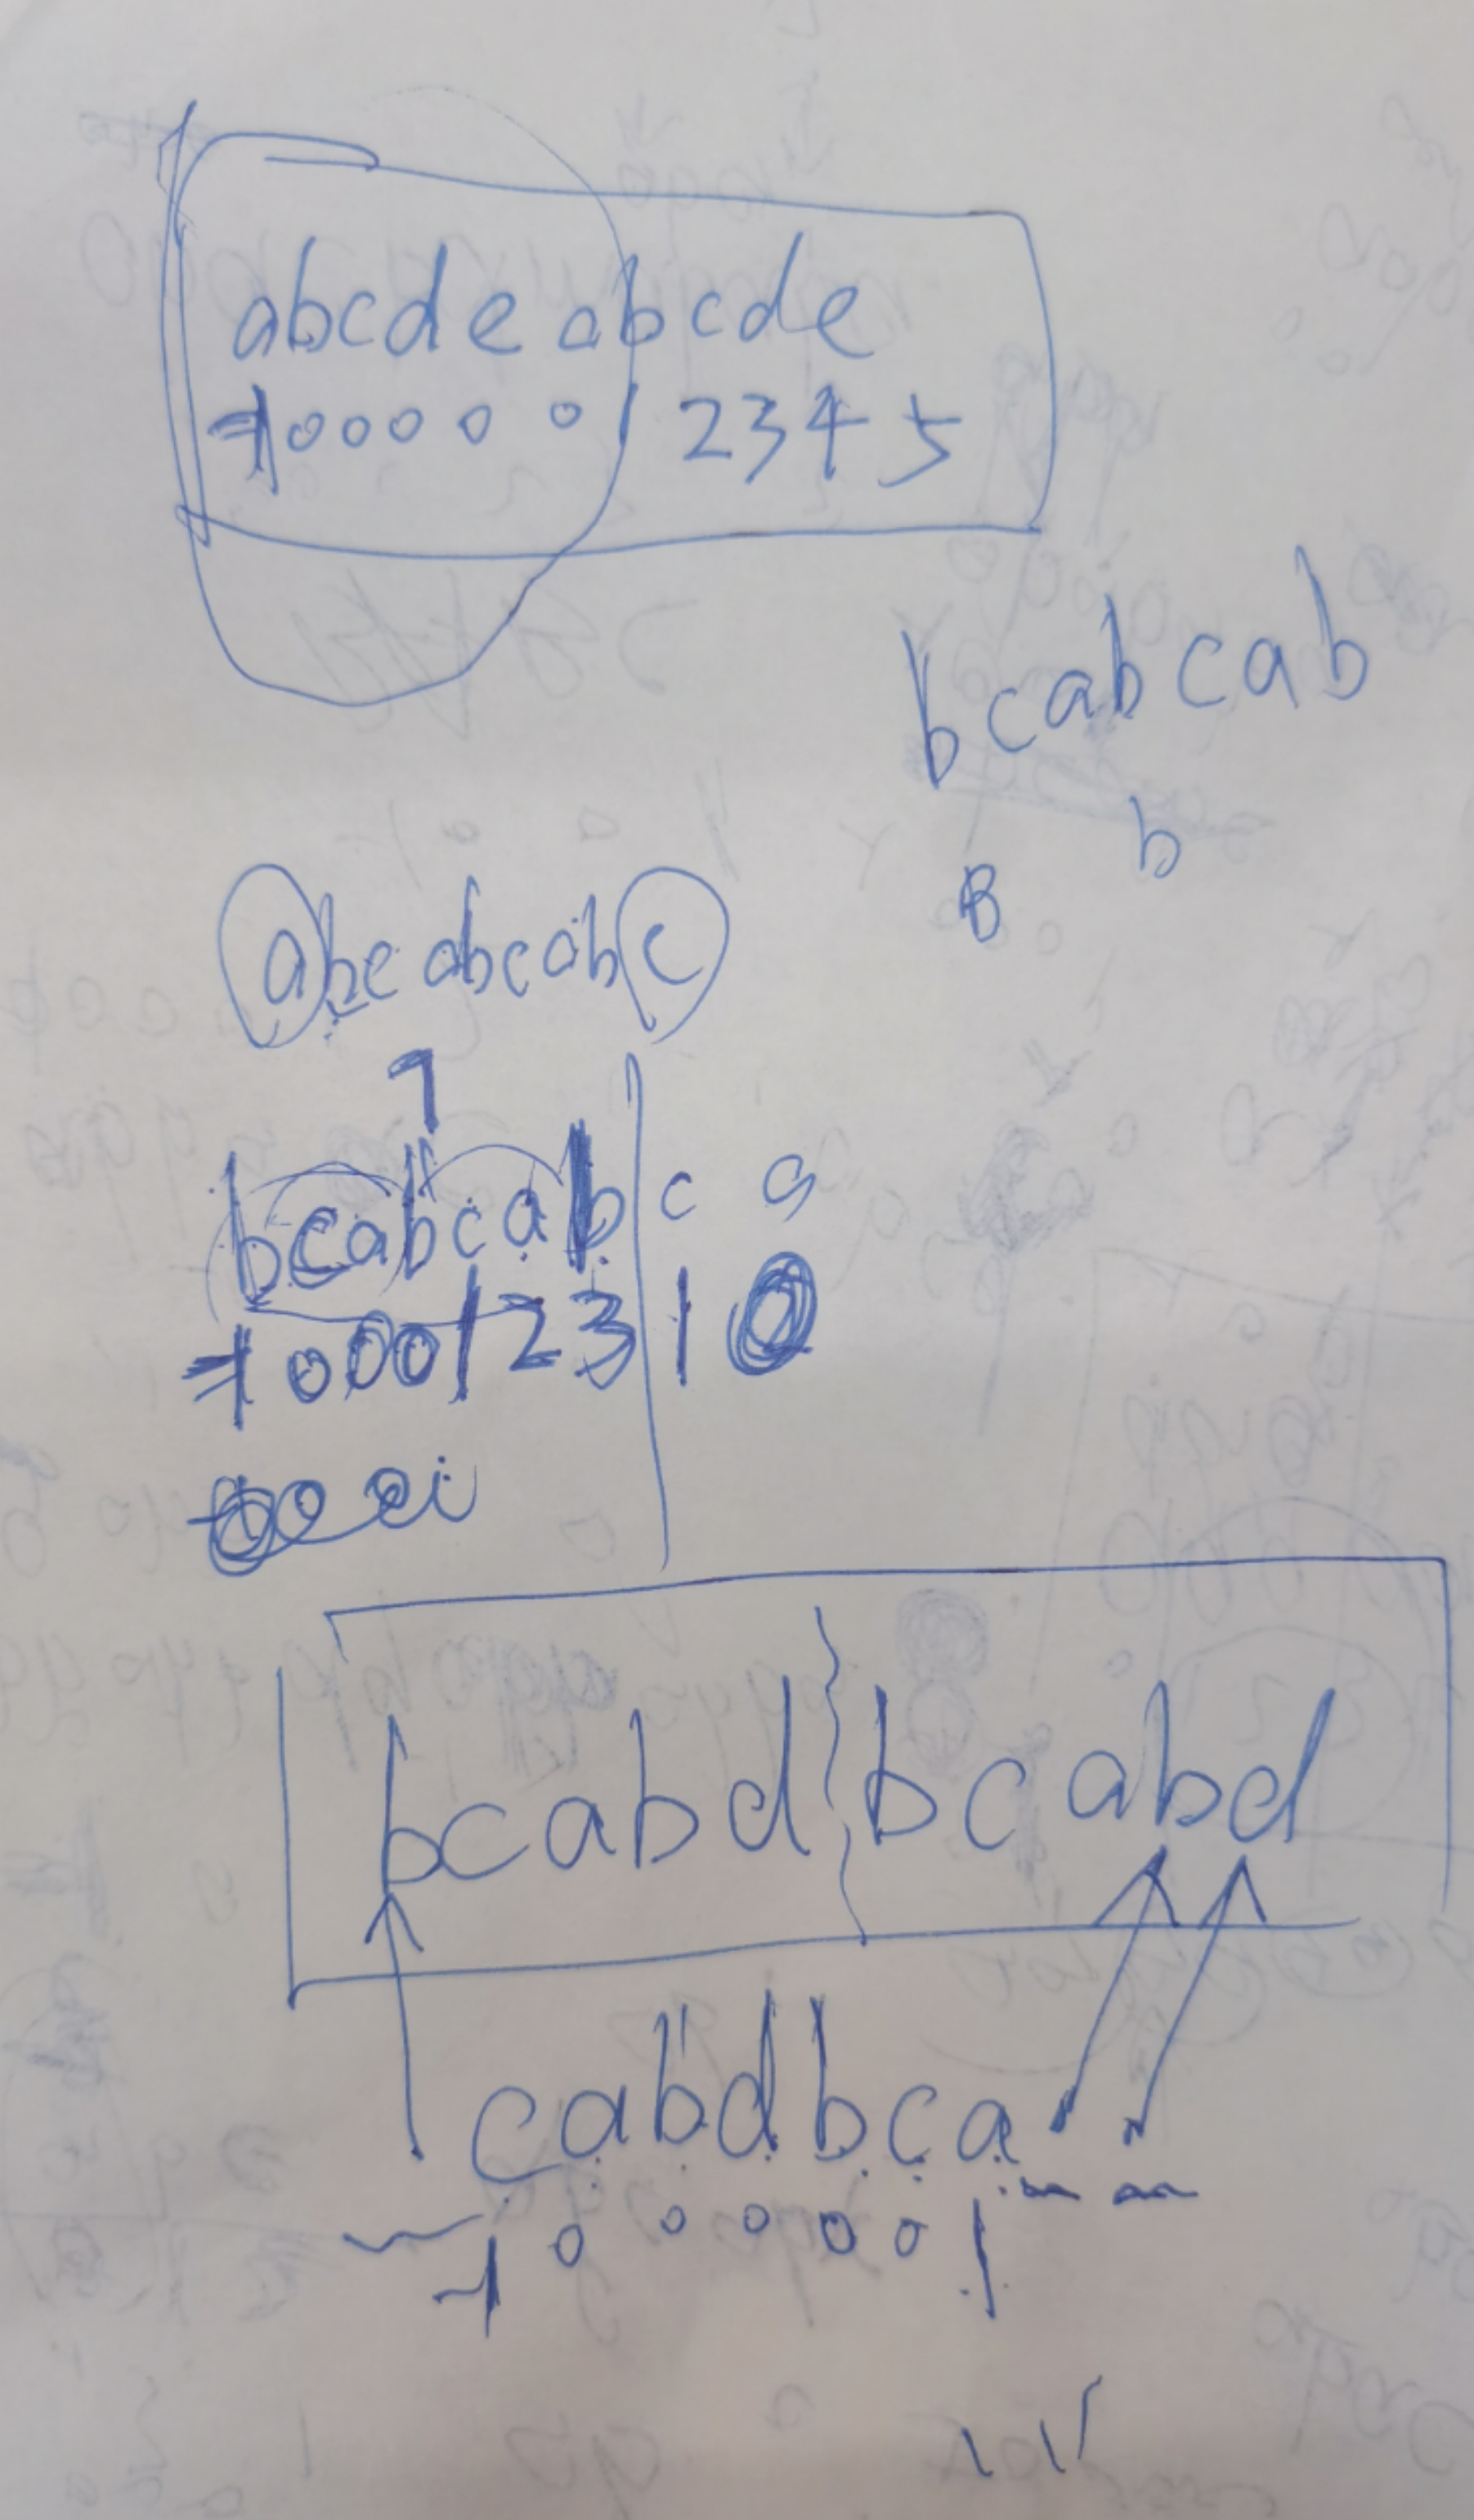 abcde abcde
-1 0 0 0 0 0 1 2 3 4 5
bcabcab
b
B
abcabcabc
1
bcabcab c a
-1 0 0 0 1 2 3 1 0
bcabd bcabd
cabdbca
-1 0 0 0 0 0 1